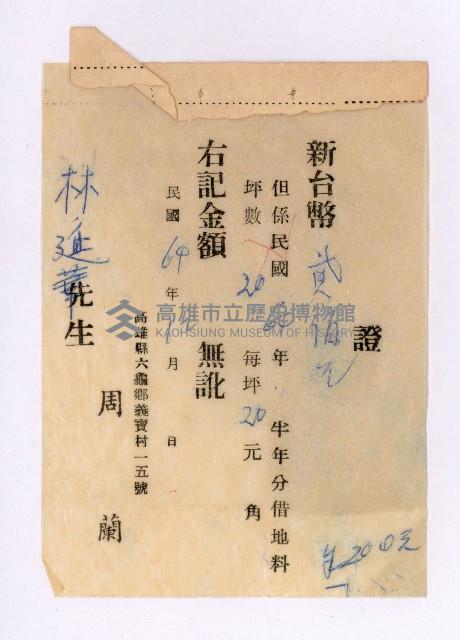 證
新台幣 貳佰元
但係民國 64 年 半年分借地料
坪數 20 每坪 20 元 角
右記金額 無訛
民國 64 年 12 月 日
高雄縣六龜鄉義寶村一五號
周蘭
林進華先生
200元
高雄市立歷史博物館
KAOHSIUNG MUSEUM OF HISTORY